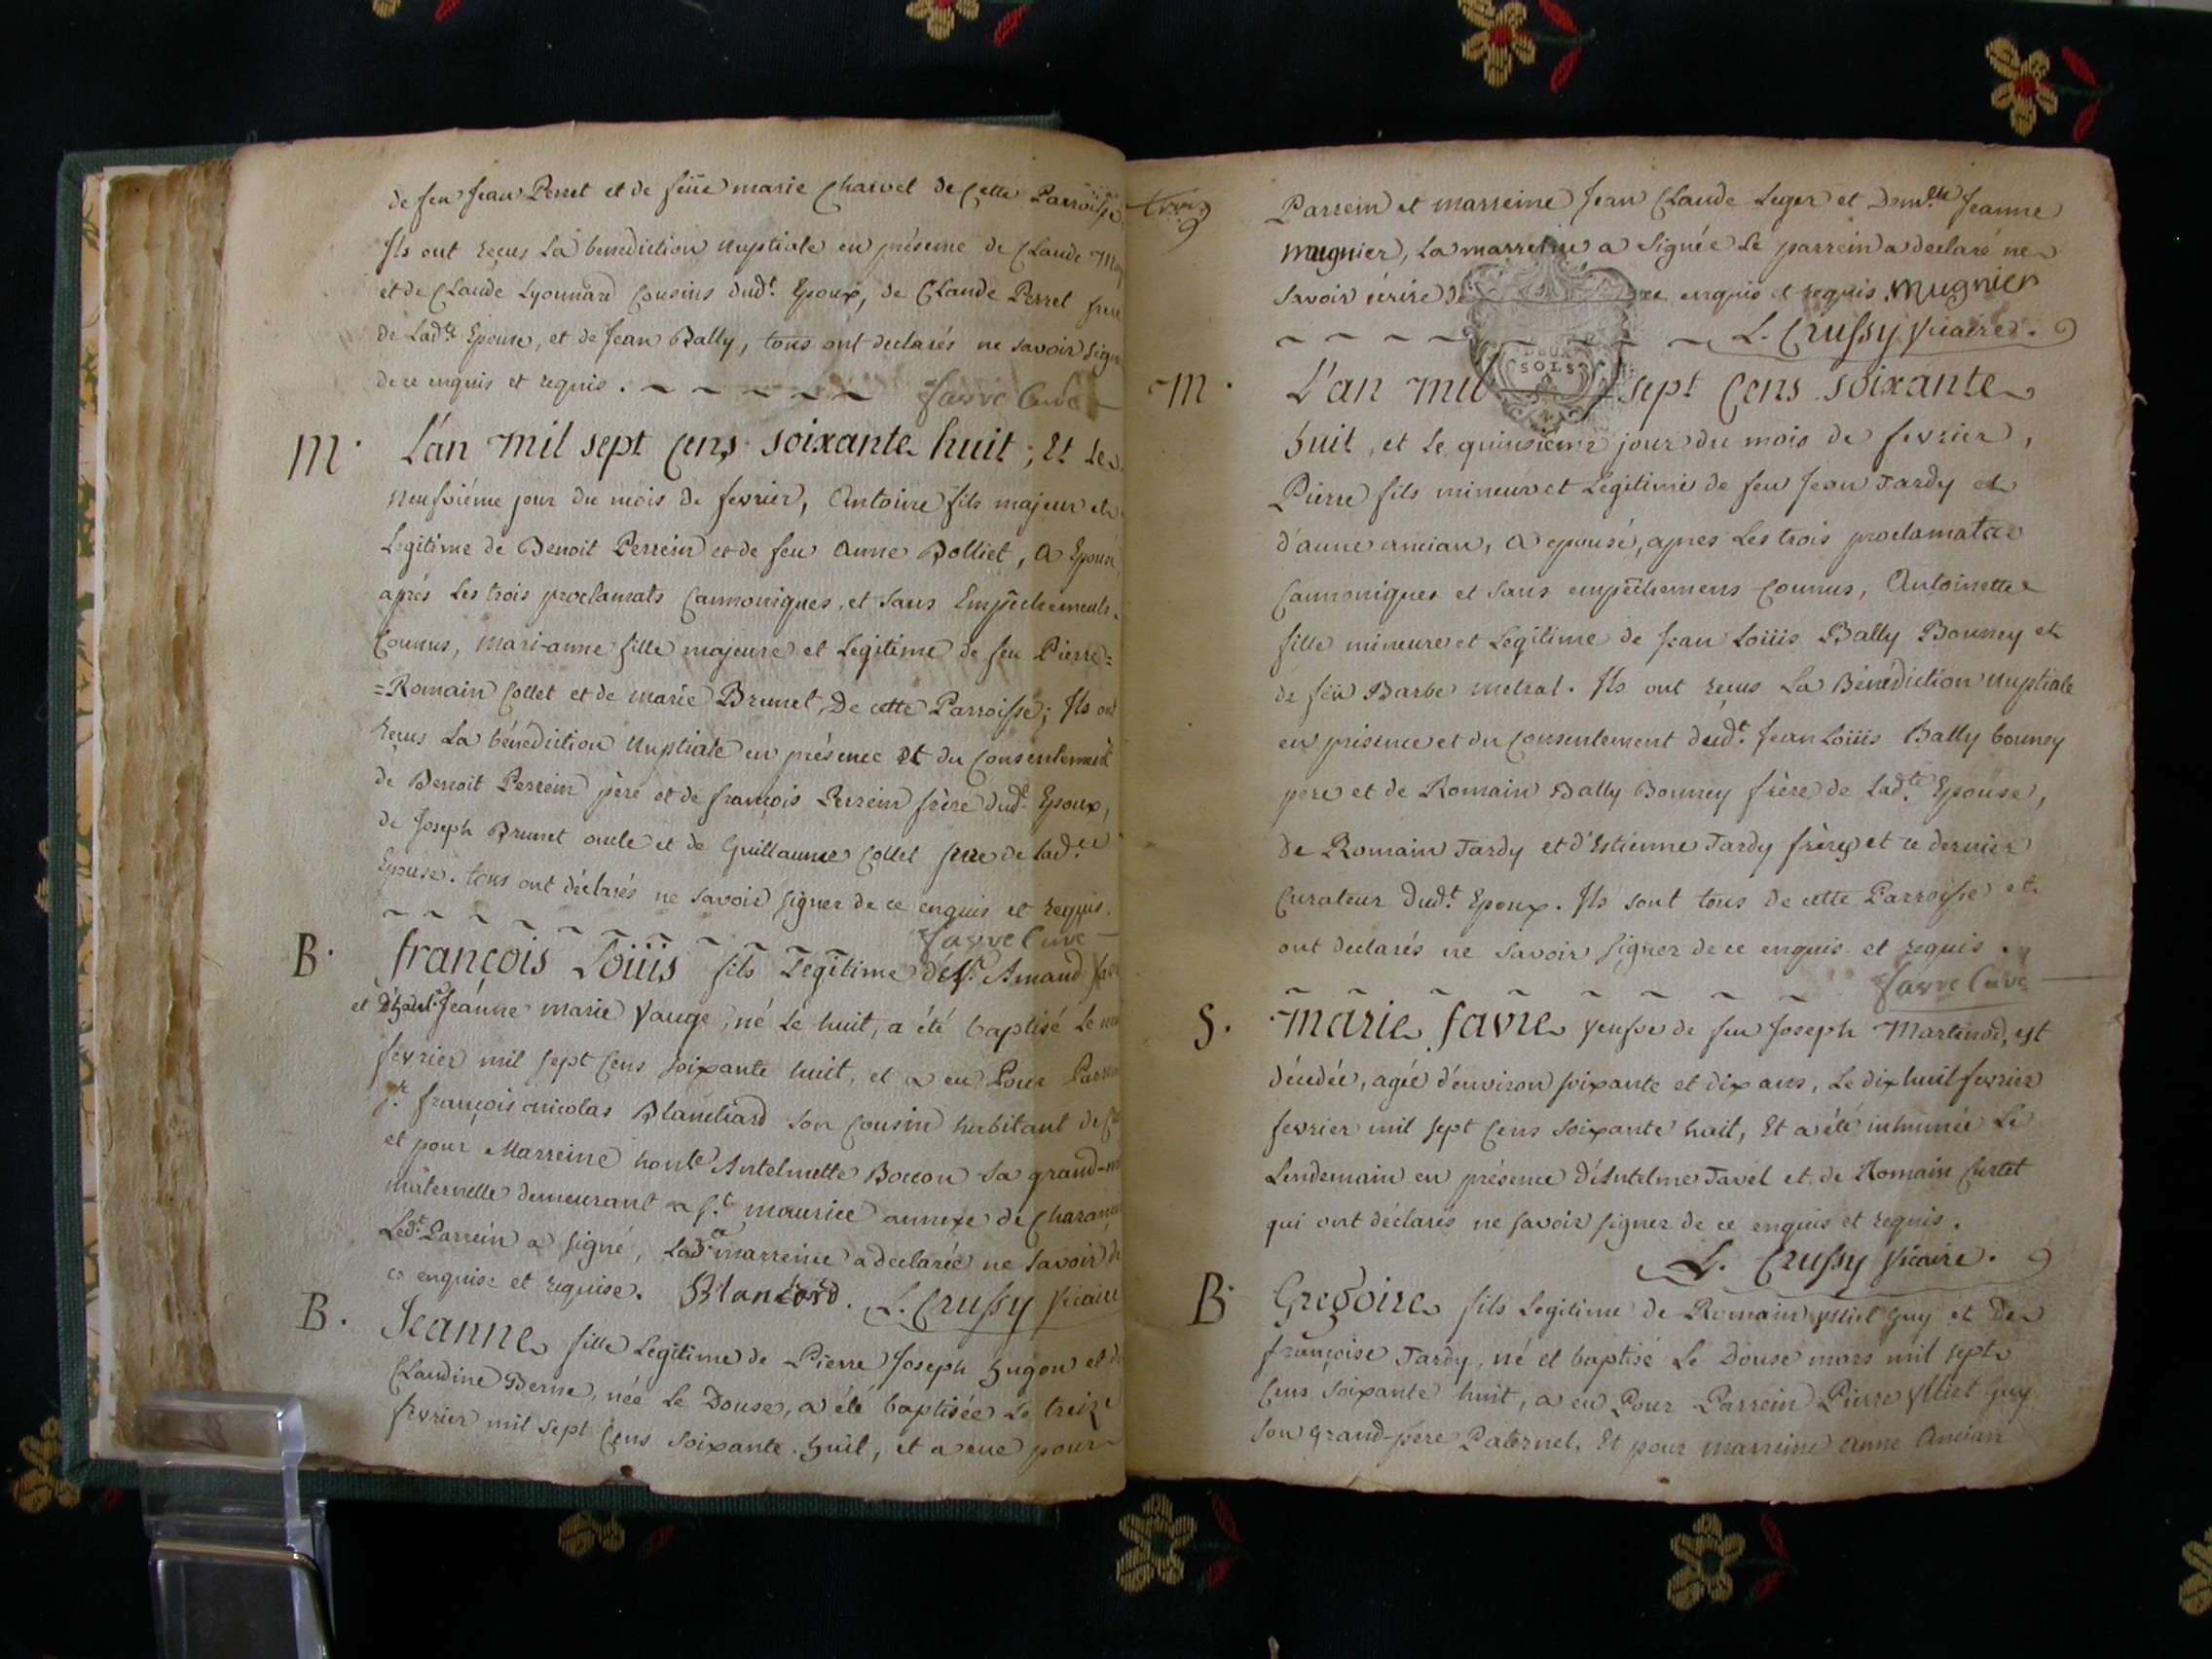 de feu Jean Perret et de feüe marie Charvet de Cette Parroisse
Ils ont reçus La benediction nuptiale en présence de Claude
et de Claude Lyonnard Cousins dud.t Epoux, de Claude Perret frere
de Lad.te Epouse, et de Jean Bally, tous ont declarés ne savoir signer
de ce enquis et requis. favre Curé
M. L'an mil sept Cens soixante huit; Et Le
neufviéme jour du mois de fevrier, Antoine fils majeur et
Legitime de Benoit Perrein et de feu Anne Bolliet, a Epousé
aprés Les trois proclamats Cannoniques, et sans Empêchements
Connus, mari-anne fille majeure et Legitime de feu Pierre=
=Romain Collet et de marie Brunet, De cette Parroisse; Ils ont
reçus La bénédiction Nuptiale en présence et du Consentement
de Benoit Perrein père et de françois Perrein frère dud.t Epoux,
de Joseph Brunet oncle et de Guillaume Collet frere de Lad.te
Epouse. tous ont déclarés ne savoir signer de ce enquis et requis.
favre Curé
B. françois Loüis fils Legitime de Sr. Amand
et Jeanne marie Vauge, né Le huit, a été baptisé Le
fevrier mil sept Cens soixante huit, et a eu Pour Parrein
Sr. françois nicolas Blanchard son Cousin habitant de
et pour Marreine hon.te Antelmette Boccon sa grand-
maternelle demeurant a St. maurice annexe de
Led.t Parrein a signé, Lad.te marreine a declarée ne savoir de
ce enquise et requise. L. Crussy Vicaire
B. Jeanne fille Legitime de Pierre Joseph hugon et de
Claudine Berne, née Le Douse, a été baptisée Le treize
fevrier mil sept Cens soixante huit, et a eue pour
trois
Parrein et marreine Jean Claude Leger et Dem.lle Jeanne
mugnier, La marreine a signée Le parrein a declaré ne
savoir écrire de ce enquis et requis. mugnier
L. Crussy Vicaire.
DEUX
SOLS
M. L'an mil sept Cens soixante
huit, et Le quinsieme jour du mois de fevrier,
Pierre fils mineur et Legitime de feu Jean Tardy et
d'anne ancian, a epousé, apres Les trois proclamats
Cannoniques et sans empêchemens Connus, Antoinette
fille mineure et Legitime de Jean Loüis Bally Bonney et
de feü Barbe metral. Ils ont reçus La Bénédiction Nuptiale
en présence et du Consentement dud.t Jean Loüis Bally bonney
pere et de Romain Bally Bonney frère de Lad.te Epouse,
de Romain Tardy et d'Estienne Tardy frères et ce dernier
Curateur dud.t Epoux. Ils sont tous de cette Parroisse et
ont declarés ne savoir signer de ce enquis et requis.
favre Curé
S. marie favre veufve de feu Joseph Martinod, est
décedée, agée d'environ soixante et dix ans, Le dix huit fevrier
fevrier mil sept Cens soixante huit, Et a été inhumée Le
Lendemain en présence d'Antelme Tavel et de Romain Curtet
qui ont déclarés ne savoir signer de ce enquis et requis.
L. Crussy Vicaire.
B. Gregoire fils Legitime de Romain Guy et De
françoise Tardy, né et baptisé Le Douse mars mil sept
Cens soixante huit, a eu Pour Parrein Pierre Guy
son grand-père Paternel, Et pour marreine Anne Ancian